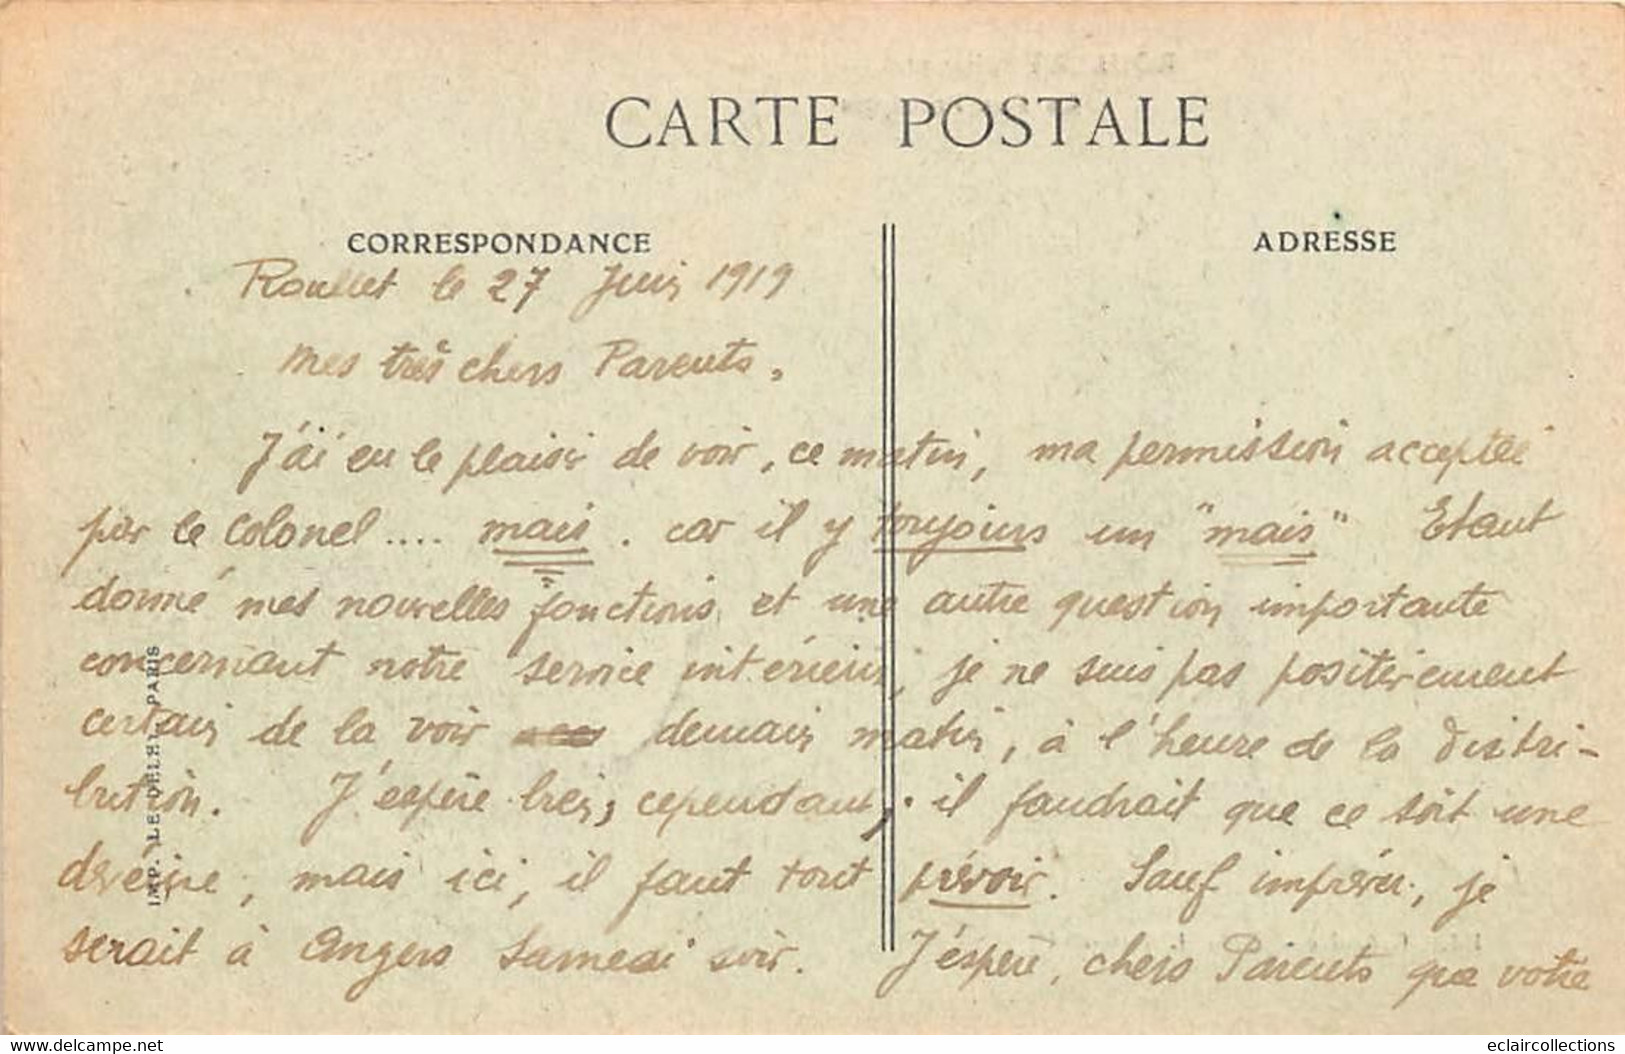 CARTE POSTALE
CORRESPONDANCE
ADRESSE
Roullet le 27 Juin 1919
Mes très chers Parents,
J'ai eu le plaisir de voir, ce matin, ma permission acceptée
par le Colonel .... mais. car il y toujours un "mais" Etant
donné mes nouvelles "fonctions et une autre question importante
concernant notre service intérieur, je ne suis pas positivement
certain de la voir demain matin, à l'heure de la distri-
bution. J'espère bien, cependant, il faudrait que ce soit une
déveine, mais ici, il faut tout prévoir. Sauf imprévu, je
serait à Angers Samedi soir. J'espère, chers Parents que votre
IMP. LE DELEY, PARIS
www.delcampe.net
eclaircollections